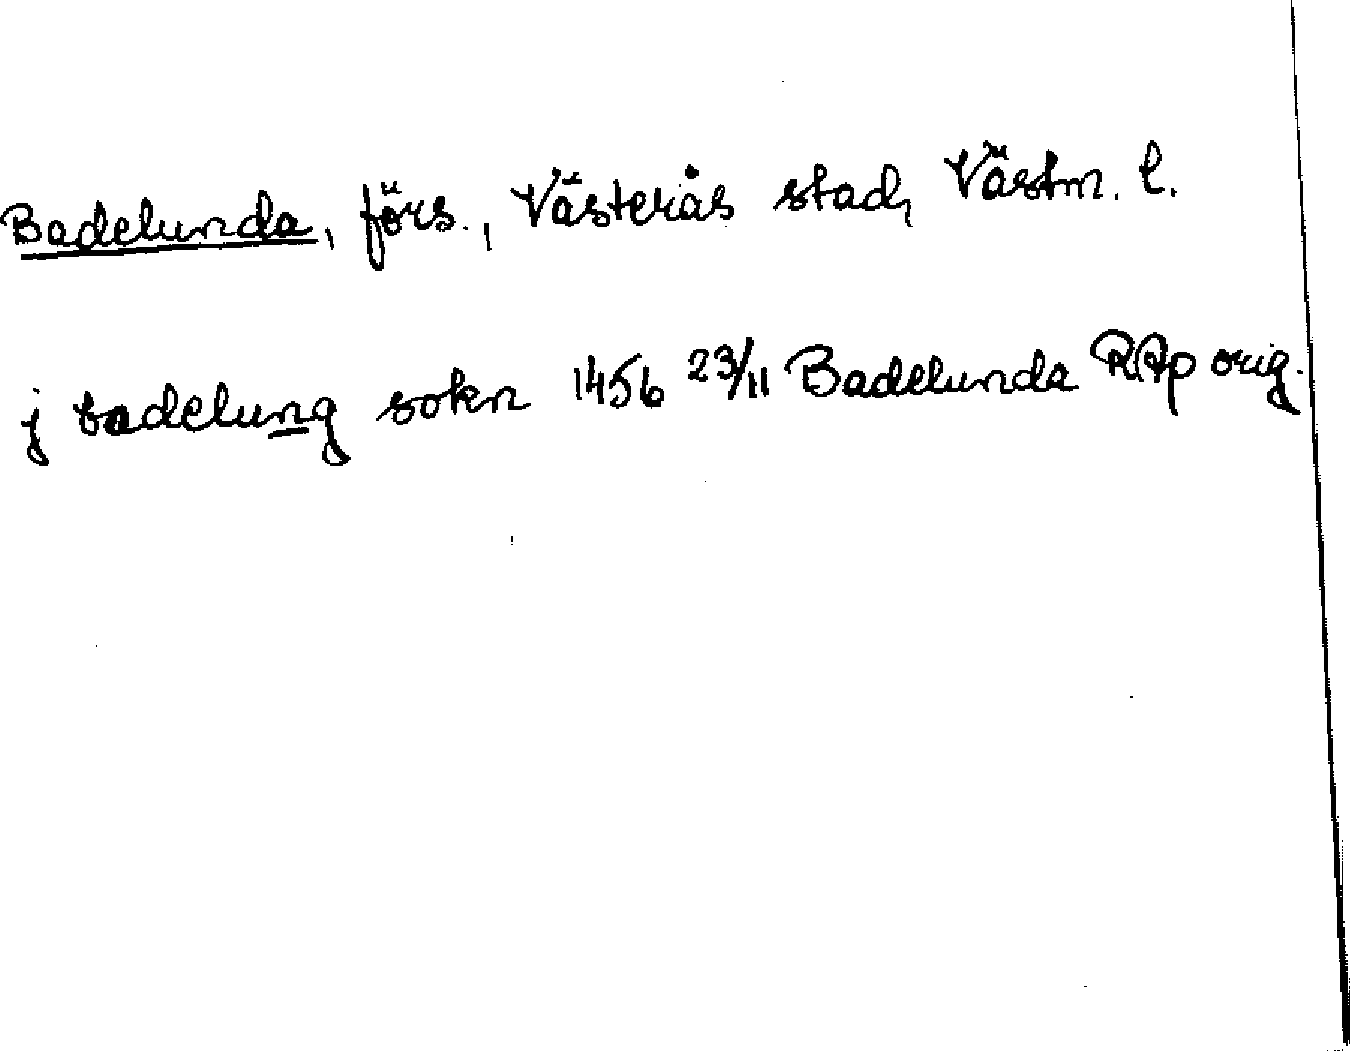 Badelunda, förs., Västerås stad, Västm. l.
j badelung sokn 1456 23/11 Badelunda RAp orig.